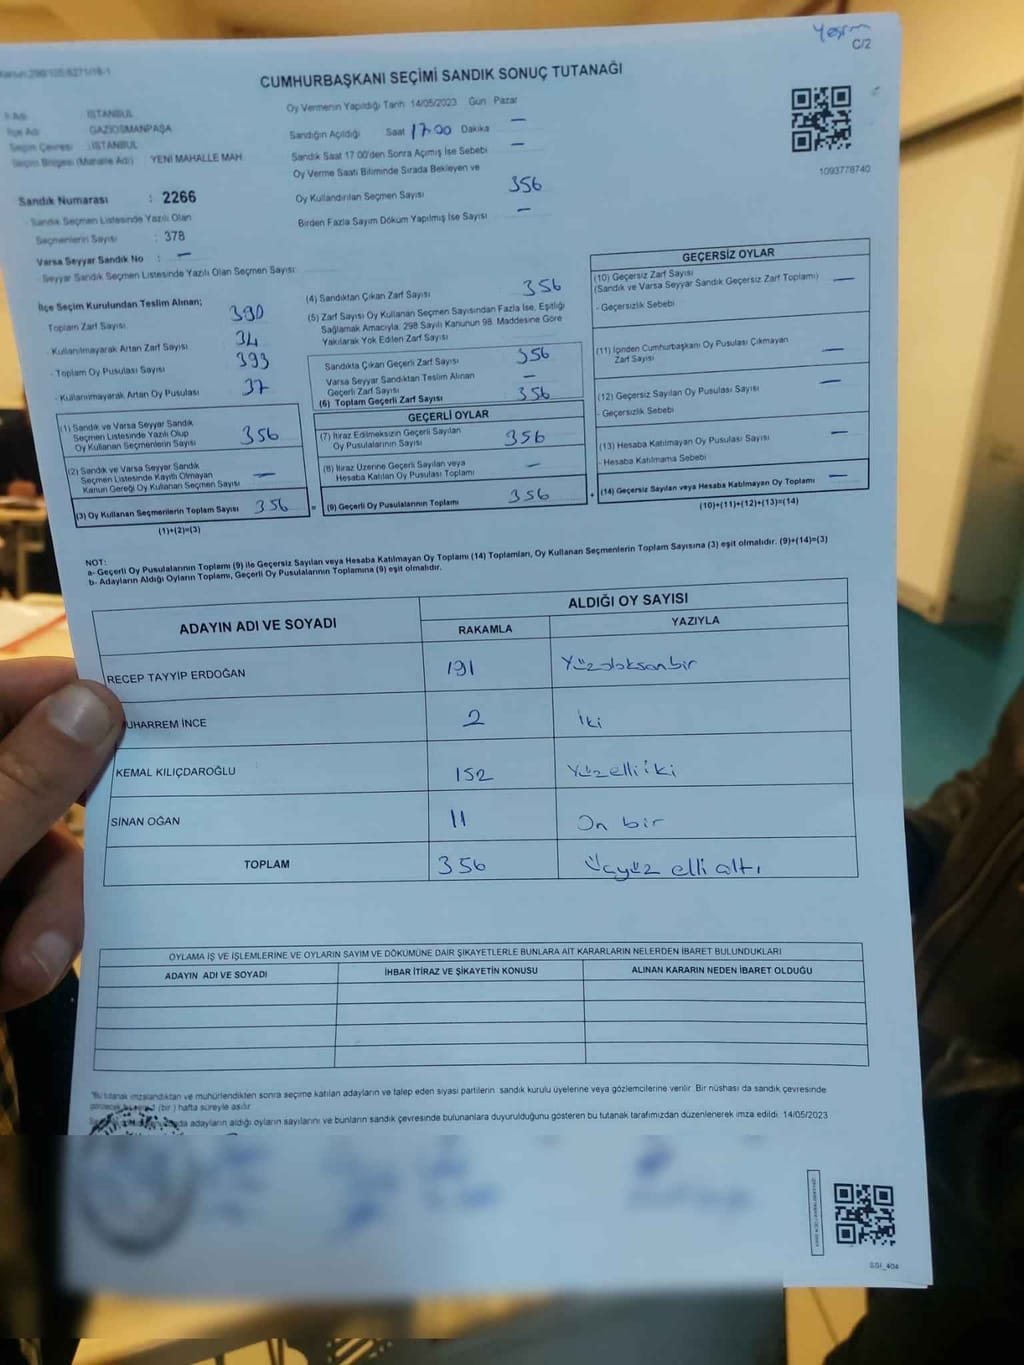 Yeşim
C/2
CUMHURBAŞKANI SEÇİMİ SANDIK SONUÇ TUTANAĞI
İl Adı : İSTANBUL
İlçe Adı : GAZİOSMANPAŞA
Seçim Çevresi : İSTANBUL
Seçim Bölgesi (Mahalle Adı) YENİ MAHALLE MAH.
Sandık Numarası : 2266
- Sandık Seçmen Listesinde Yazılı Olan
Seçmenlerin Sayısı : 378
Varsa Seyyar Sandık No : —
- Seyyar Sandık Seçmen Listesinde Yazılı Olan Seçmen Sayısı:
Oy Vermenin Yapıldığı Tarih 14/05/2023 Gün Pazar
Sandığın Açıldığı Saat 17:00 Dakika —
Sandık Saat 17 00'den Sonra Açımış İse Sebebi —
Oy Verme Saati Bitiminde Sırada Bekleyen ve
Oy Kullandırılan Seçmen Sayısı 356
Birden Fazla Sayım Döküm Yapılmış İse Sayısı —
1093778740
İlçe Seçim Kurulundan Teslim Alınan;
- Toplam Zarf Sayısı 390
- Kullanılmayarak Artan Zarf Sayısı 34
- Toplam Oy Pusulası Sayısı 393
- Kullanılmayarak Artan Oy Pusulası 37
(1) Sandık ve Varsa Seyyar Sandık
Seçmen Listesinde Yazılı Olup
Oy Kullanan Seçmenlerin Sayısı 356
(2) Sandık ve Varsa Seyyar Sandık
Seçmen Listesinde Kayıtlı Olmayan
Kanun Gereği Oy Kullanan Seçmen Sayısı —
(3) Oy Kullanan Seçmenlerin Toplam Sayısı 356
(1)+(2)=(3)
(4) Sandıktan Çıkan Zarf Sayısı 356
(5) Zarf Sayısı Oy Kullanan Seçmen Sayısından Fazla İse, Eşitliği
Sağlamak Amacıyla, 298 Sayılı Kanunun 98. Maddesine Göre
Yakılarak Yok Edilen Zarf Sayısı
Sandıkta Çıkan Geçerli Zarf Sayısı 356
Varsa Seyyar Sandıktan Teslim Alınan
Geçerli Zarf Sayısı —
(6) Toplam Geçerli Zarf Sayısı 356
GEÇERLİ OYLAR
(7) İtiraz Edilmeksizin Geçerli Sayılan
Oy Pusulalarının Sayısı 356
(8) İtiraz Üzerine Geçerli Sayılan veya
Hesaba Katılan Oy Pusulası Toplamı —
= (9) Geçerli Oy Pusulalarının Toplamı 356
GEÇERSİZ OYLAR
(10) Geçersiz Zarf Sayısı
(Sandık ve Varsa Seyyar Sandık Geçersiz Zarf Toplamı) —
- Geçersizlik Sebebi
(11) İçinden Cumhurbaşkanı Oy Pusulası Çıkmayan
Zarf Sayısı —
(12) Geçersiz Sayılan Oy Pusulası Sayısı —
- Geçersizlik Sebebi
(13) Hesaba Katılmayan Oy Pusulası Sayısı —
- Hesaba Katılmama Sebebi
+ (14) Geçersiz Sayılan veya Hesaba Katılmayan Oy Toplamı —
(10)+(11)+(12)+(13)=(14)
NOT:
a- Geçerli Oy Pusulalarının Toplamı (9) ile Geçersiz Sayılan veya Hesaba Katılmayan Oy Toplamı (14) Toplamları, Oy Kullanan Seçmenlerin Toplam Sayısına (3) eşit olmalıdır. (9)+(14)=(3)
b- Adayların Aldığı Oyların Toplamı, Geçerli Oy Pusulalarının Toplamına (9) eşit olmalıdır.
ADAYIN ADI VE SOYADI
ALDIĞI OY SAYISI
RAKAMLA YAZIYLA
RECEP TAYYİP ERDOĞAN 191 Yüzdoksanbir
MUHARREM İNCE 2 İki
KEMAL KILIÇDAROĞLU 152 Yüzelliiki
SİNAN OĞAN 11 On bir
TOPLAM 356 Üçyüz elli altı
OYLAMA İŞ VE İŞLEMLERİNE VE OYLARIN SAYIM VE DÖKÜMÜNE DAİR ŞİKAYETLERLE BUNLARA AİT KARARLARIN NELERDEN İBARET BULUNDUKLARI
ADAYIN ADI VE SOYADI İHBAR İTİRAZ VE ŞİKAYETİN KONUSU ALINAN KARARIN NEDEN İBARET OLDUĞU
tutanak imzalandıktan ve mühürlendikten sonra seçime katılan adayların ve talep eden siyasi partilerin sandık kurulu üyelerine veya gözlemcilerine verilir. Bir nüshası da sandık çevresinde
(bir) hafta süreyle asılır.
adayların aldığı oyların sayılarını ve bunların sandık çevresinde bulunanlara duyurulduğunu gösteren bu tutanak tarafımızdan düzenlenerek imza edildi. 14/05/2023
SGI_404